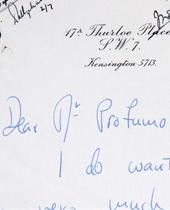 2/7
17A Thurloe Place
S.W.7.
Kensington 5713.
Dear Mr Profumo
I do want
very much